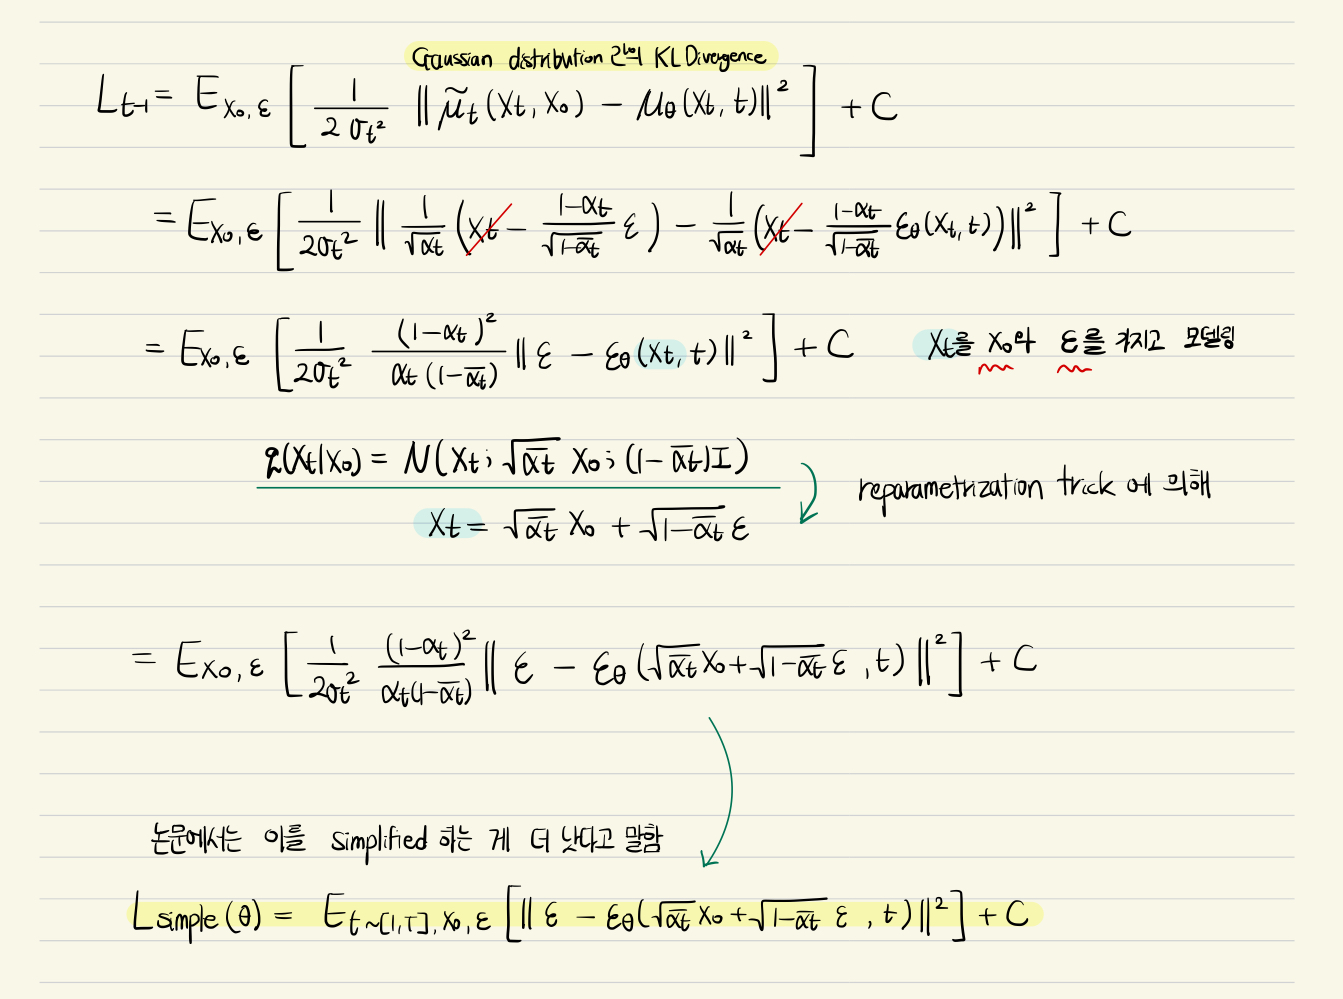 Gaussian distribution 간의 KL Divergence
L_{t-1} = E_{x₀, ε} [ 1 / 2σ_t² ‖ μ̃_t(x_t, x₀) − μ_θ(x_t, t) ‖² ] + C
= E_{x₀, ε} [ 1 / 2σ_t² ‖ 1/√α_t ( x_t − (1−α_t)/√(1−ᾱ_t) ε ) − 1/√α_t ( x_t − (1−α_t)/√(1−ᾱ_t) ε_θ(x_t, t) ) ‖² ] + C
= E_{x₀, ε} [ 1 / 2σ_t² (1−α_t)² / α_t(1−ᾱ_t) ‖ ε − ε_θ(x_t, t) ‖² ] + C x_t를 x₀와 ε를 가지고 모델링
q(x_t|x₀) = N(x_t ; √ᾱ_t x₀ ; (1−ᾱ_t)I)
reparametrization trick 에 의해
x_t = √ᾱ_t x₀ + √(1−ᾱ_t) ε
= E_{x₀, ε} [ 1 / 2σ_t² (1−α_t)² / α_t(1−ᾱ_t) ‖ ε − ε_θ(√ᾱ_t x₀ + √(1−ᾱ_t) ε , t) ‖² ] + C
논문에서는 이를 simplified 하는 게 더 낫다고 말함
L_{simple}(θ) = E_{t~[1,T], x₀, ε} [ ‖ ε − ε_θ(√ᾱ_t x₀ + √(1−ᾱ_t) ε , t) ‖² ] + C